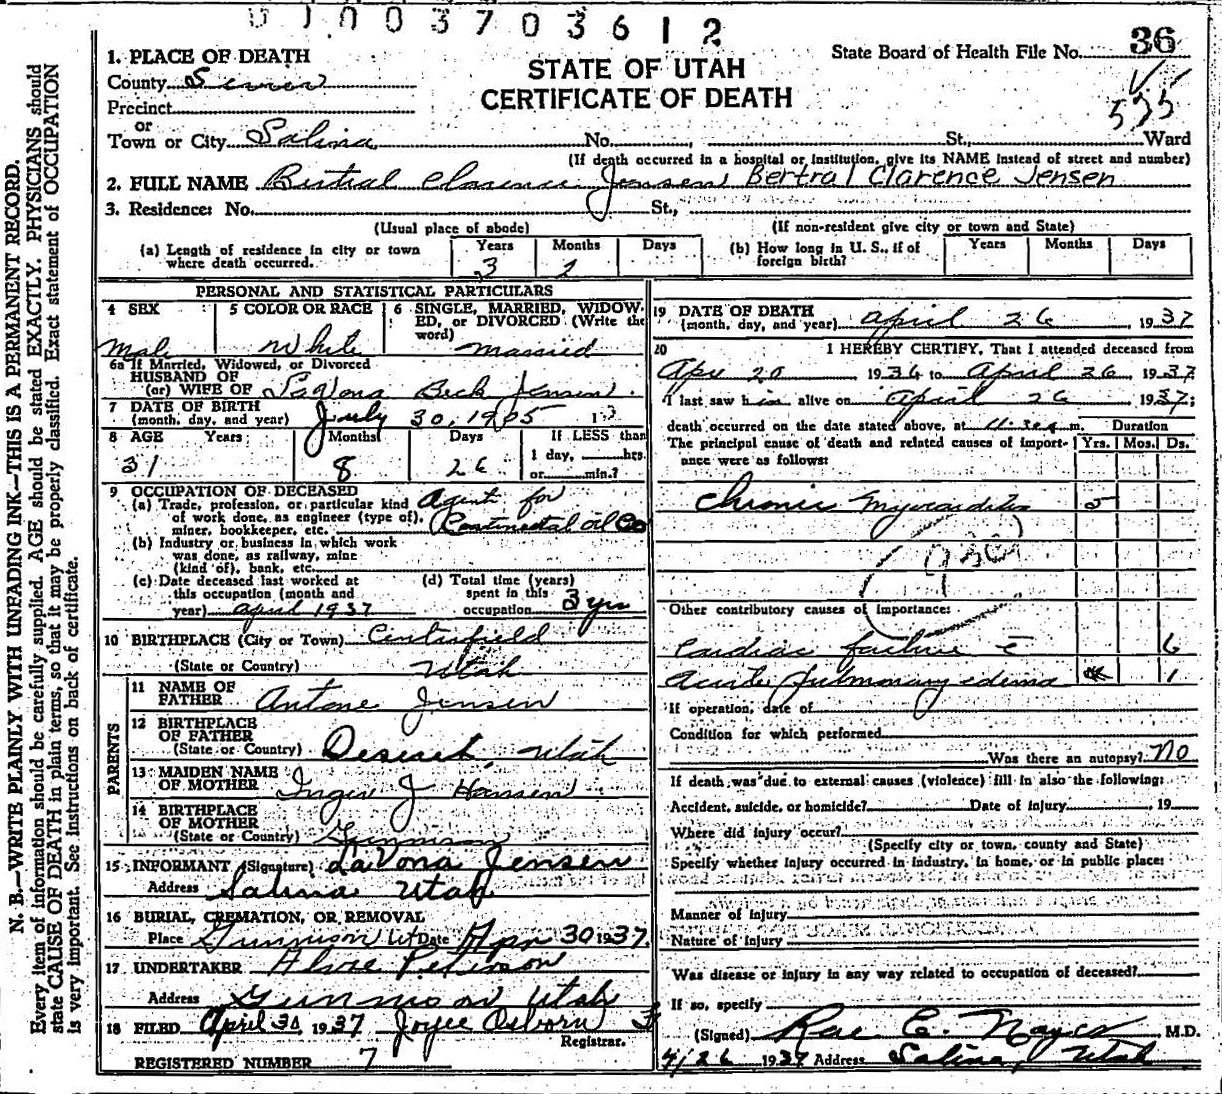 0100370361 2
State Board of Health File No. 36
STATE OF UTAH
CERTIFICATE OF DEATH
1. PLACE OF DEATH
County Sevier
Precinct
or
Town or City Salina No. , St., Ward
(If death occurred in a hospital or institution, give its NAME instead of street and number)
2. FULL NAME Bertral Clarence Jensen Bertral Clarence Jensen
3. Residence: No. St.,
(Usual place of abode) (If non-resident give city or town and State)
(a) Length of residence in city or town where death occurred. Years 3 Months 2 Days
(b) How long in U. S., if of foreign birth? Years Months Days
PERSONAL AND STATISTICAL PARTICULARS
4 SEX Male
5 COLOR OR RACE White
6 SINGLE, MARRIED, WIDOWED, or DIVORCED (Write the word) Married
6a If Married, Widowed, or Divorced
HUSBAND OF
(or) WIFE OF LaVona Beck Jensen
7 DATE OF BIRTH
(month, day, and year) July 30, 1905
8 AGE Years 31 Months 8 Days 26 If LESS than 1 day, hrs. or min.?
9 OCCUPATION OF DECEASED
(a) Trade, profession, or particular kind of work done, as engineer (type of), miner, bookkeeper, etc. Agent for Continental Oil Co
(b) Industry or business in which work was done, as railway, mine (kind of), bank, etc.
(c) Date deceased last worked at this occupation (month and year) April 1937
(d) Total time (years) spent in this occupation 3 yrs
10 BIRTHPLACE (City or Town) Centerfield
(State or Country) Utah
PARENTS
11 NAME OF FATHER Antone Jensen
12 BIRTHPLACE OF FATHER
(State or Country) Deseret, Utah
13 MAIDEN NAME OF MOTHER J Hansen
14 BIRTHPLACE OF MOTHER
(State or Country) Gunnison
15 INFORMANT (Signature) LaVona Jensen
Address Salina Utah
16 BURIAL, CREMATION, OR REMOVAL
Place Gunnison Ut Date Apr 30 1937.
17 UNDERTAKER Peterson
Address Gunnison Utah
18 FILED April 30, 1937 Joyce Osborn
Registrar.
REGISTERED NUMBER 7
19 DATE OF DEATH
(month, day, and year) April 26, 1937
20 I HEREBY CERTIFY, That I attended deceased from
Apr 20 1936 to April 26 1937
I last saw him alive on April 26 1937;
death occurred on the date stated above, at m. Duration
The principal cause of death and related causes of importance were as follows: Yrs. Mos. Ds.
Chronic Myocarditis 5
Other contributory causes of importance:
Cardiac failure c̄ 6
Acute pulmonary edema 1
If operation, date of
Condition for which performed
Was there an autopsy? No
If death was due to external causes (violence) fill in also the following:
Accident, suicide, or homicide? Date of Injury , 19
Where did injury occur?
(Specify city or town, county and State)
Specify whether injury occurred in industry, in home, or in public place:
Manner of injury
Nature of injury
Was disease or injury in any way related to occupation of deceased?
If so, specify
(Signed) Rae E. Noyes M.D.
4/26 1937 Address Salina, Utah
N. B.—WRITE PLAINLY WITH UNFADING INK—THIS IS A PERMANENT RECORD.
Every item of information should be carefully supplied. AGE should be stated EXACTLY. PHYSICIANS should
state CAUSE OF DEATH in plain terms, so that it may be properly classified. Exact statement of OCCUPATION
is very important. See instructions on back of certificate.